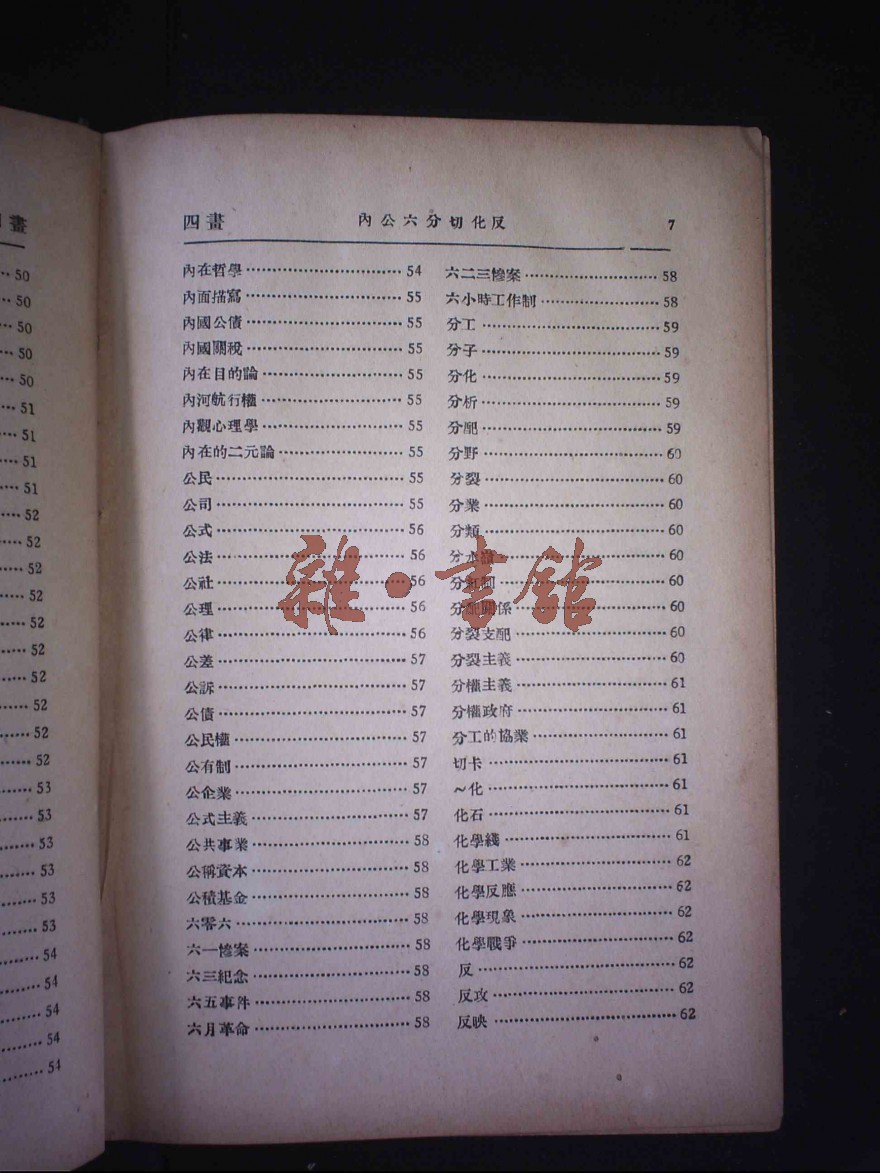 畫
50
50
50
50
50
51
51
51
51
52
52
52
52
52
52
52
52
52
52
53
53
53
53
53
53
54
54
54
54
54
四畫 內公六分切化反 7
內在哲學 54
內面描寫 55
內國公債 55
內國關稅 55
內在目的論 55
內河航行權 55
內觀心理學 55
內在的二元論 55
公民 55
公司 55
公式 56
公法 56
公社 56
公理 56
公律 56
公差 57
公訴 57
公債 57
公民權 57
公有制 57
公企業 57
公式主義 57
公共事業 58
公稱資本 58
公積基金 58
六零六 58
六一慘案 58
六三紀念 58
六五事件 58
六月革命 58
六二三慘案 58
六小時工作制 58
分工 59
分子 59
分化 59
分析 59
分配 59
分野 60
分裂 60
分業 60
分類 60
分水嶺 60
分紅制 60
分配關係 60
分裂支配 60
分裂主義 60
分權主義 61
分權政府 61
分工的協業 61
切卡 61
～化 61
化石 61
化學綫 61
化學工業 62
化學反應 62
化學現象 62
化學戰爭 62
反 62
反攻 62
反映 62
雜·書館